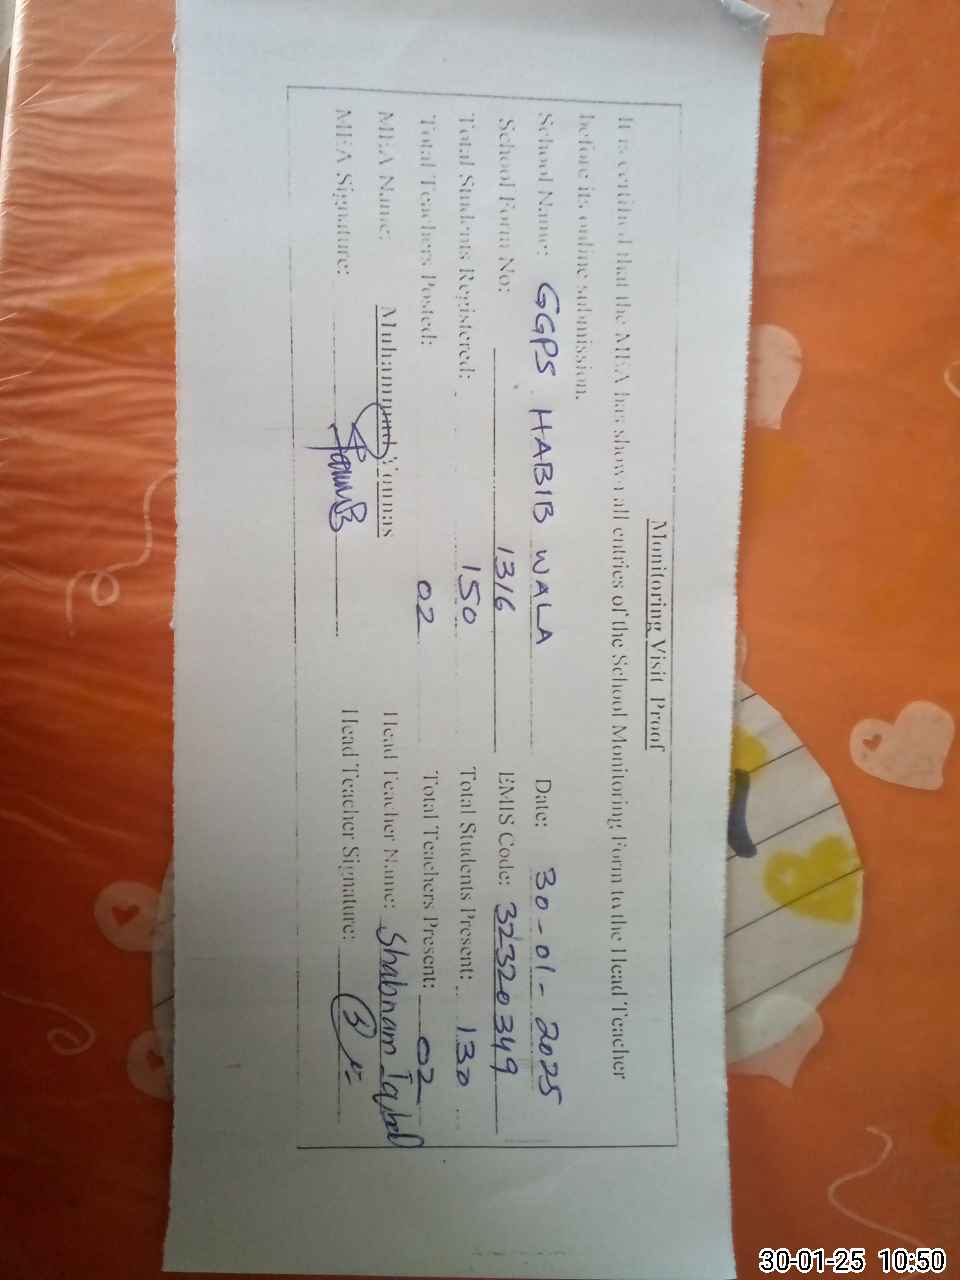 Monitoring Visit Proof
It is certified that the MEA has shown all entries of the School Monitoring Form to the Head Teacher
before its online submission.
School Name: GGPS HABIB WALA Date: 30-01-2025
School Form No: 1316 EMIS Code: 32320349
Total Students Registered: 150 Total Students Present: 130
Total Teachers Posted: 02 Total Teachers Present: 02
MEA Name: Muhammad Younas Head Teacher Name: Shabnam Iqbal
MEA Signature: Head Teacher Signature:
30-01-25 10:50